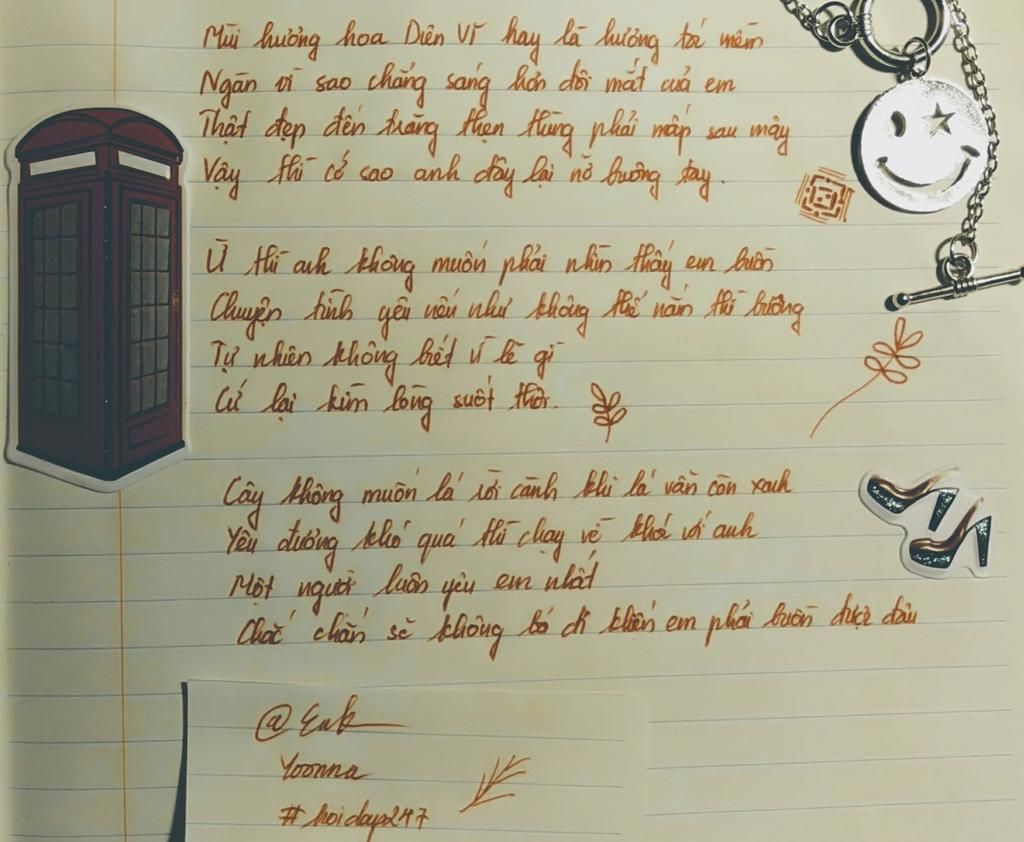 Mùi hương hoa Diên Vĩ hay là hương tóc mềm
Ngàn vì sao chẳng sáng hơn đôi mắt của em
Thật đẹp đến trăng thẹn thùng phải nấp sau mây
Vậy thì cớ sao anh đây lại nỡ buông tay.
Ừ thì anh không muốn phải nhìn thấy em buồn
Chuyện tình yêu nếu như không thể nắm thì buông
Tự nhiên không biết vì lẽ gì
Cứ lại kìm lòng suốt thôi.
Cây không muốn lá rời cành khi lá vẫn còn xanh
Yêu đương khó quá thì chạy về khóc với anh
Một người luôn yêu em nhất
Chắc chắn sẽ không bỏ đi khiến em phải buồn được đâu
Yoonna
#hoidap247